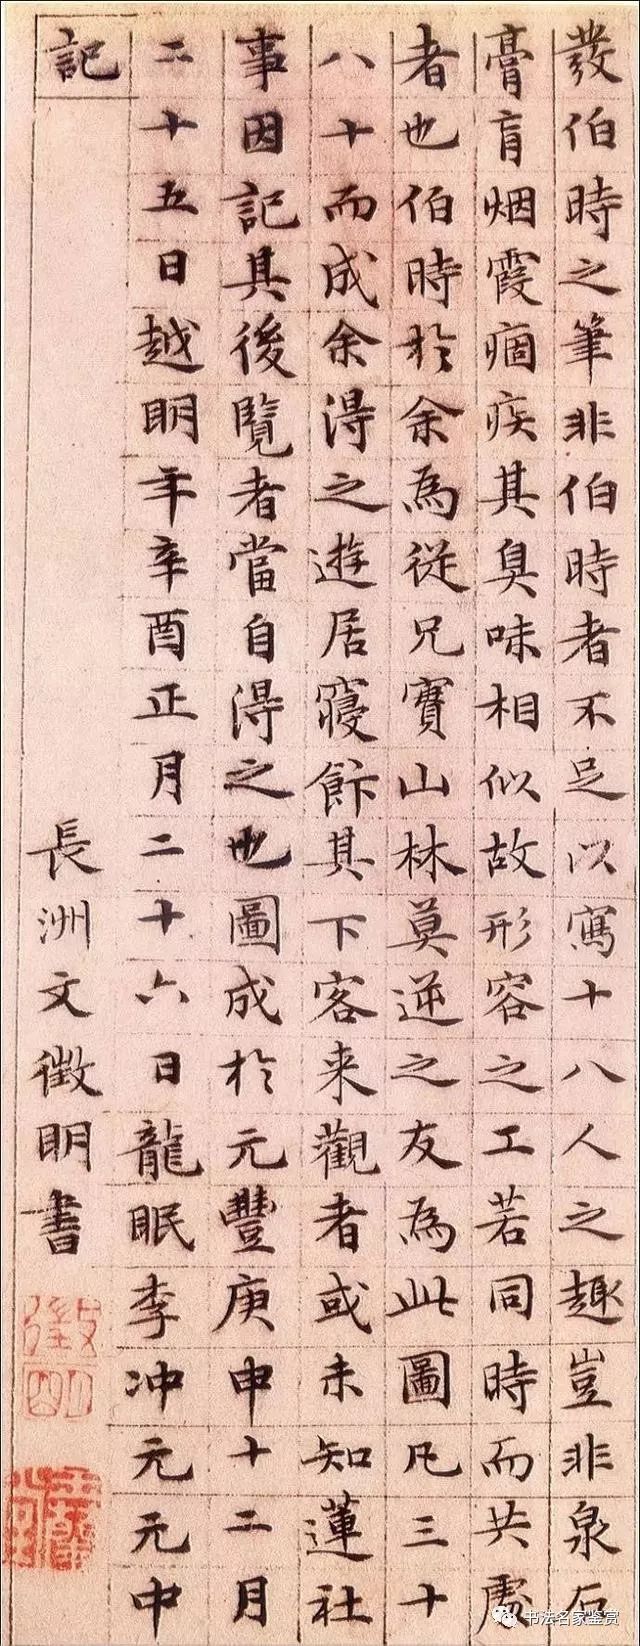 發伯時之筆非伯時者不足以寫十八人之趣豈非泉石
膏肓烟霞痼疾其臭味相似故形容之工若同時而共處
者也伯時於余為從兄實山林莫逆之友為此圖凡三十
八十而成余得之遊居寢飰其下客来觀者或未知蓮社
事因記其後覽者當自得之也圖成於元豐庚申十二月
二十五日越明年辛酉正月二十六日龍眠李冲元元中
記
長洲文徵明書
徵明
书法名家鉴赏